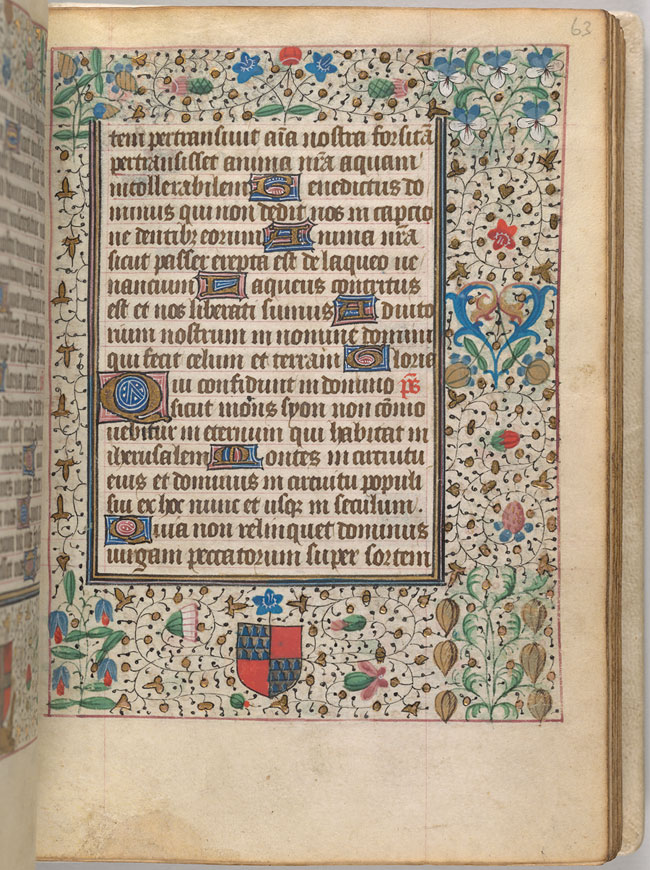 63
tem pertransiuit aīa nostra forsitā
pertransisset anima nr̄a aquam
intollerabilem Benedictus do
minus qui non dedit nos in captio
ne dentibꝫ eorum Anima nr̄a
sicut passer erepta est de laqueo ue
nantium Laqueus contritus
est et nos liberati sumus Adiuto
rium nostrum in nomine domini
qui fecit celum et terram Gloria
Qui confidunt in domino pšs
sicut mons syon non cōmo
uebitur in eternum qui habitat in
iherusalem Montes in circuitu
eius et dominus in circuitu populi
sui ex hoc nunc et usqꝫ in seculum
Quia non relinquet dominus
uirgam peccatorum super sortem